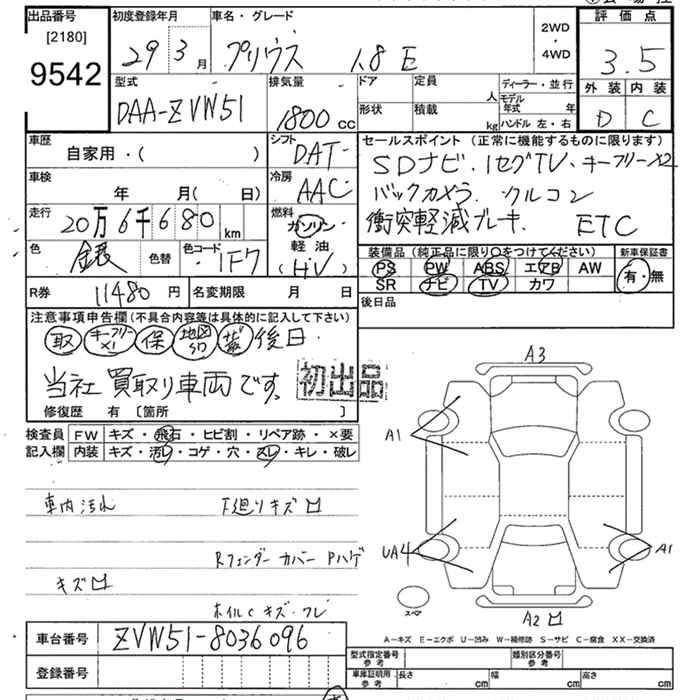 出品番号
[2180]
9542
初度登録年月
29 3月
車名・グレード
プリウス 1.8 E
2WD
・
4WD
評価点
3.5
外装 内装
D C
型式
DAA-ZVW51
排気量
1800cc
ドア
定員
人
形状
積載
kg
ディーラー・並行
モデル年式 年
ハンドル 左・右
車歴
自家用・( )
シフト
DAT
セールスポイント (正常に機能するものに限ります)
SDナビ、1セグTV、キーフリー×2
バックカメラ クルコン
衝突軽減ブレーキ ETC
車検
年 月( 日)
冷房
AAC
走行
20万6千680km
燃料
ガソリン
軽油
(HV)
色
銀
色替
色コード
1F7
装備品(純正品に限り○をつけてください)
PS PW ABS エアB AW
SR ナビ TV カワ
新車保証書
有・無
R券 11480円
名変期限 月 日
後日品
注意事項申告欄(不具合内容等は具体的に記入して下さい)
取 キーフリー×1 保 地図SD 後日
当社買取り車両です。
初出品
修復歴 有 [箇所 ]
検査員記入欄
FW キズ・飛石・ヒビ割・リペア跡・×要
内装 キズ・汚レ・コゲ・穴・スレ・キレ・破レ
車内汚れ 下廻りキズ
Rフェンダーカバー Pハゲ
キズ
ホイルC キズ・フレ
A3
A1
UA4
A1
スペア
A2
A-キズ E-エクボ U-凹み W-補修跡 S-サビ C-腐食 XX-交換済
車台番号 ZVW51-8036096
登録番号
型式指定番号 参考
類別区分番号 参考
車庫証明用 参考
長さ cm
幅 cm
高さ cm